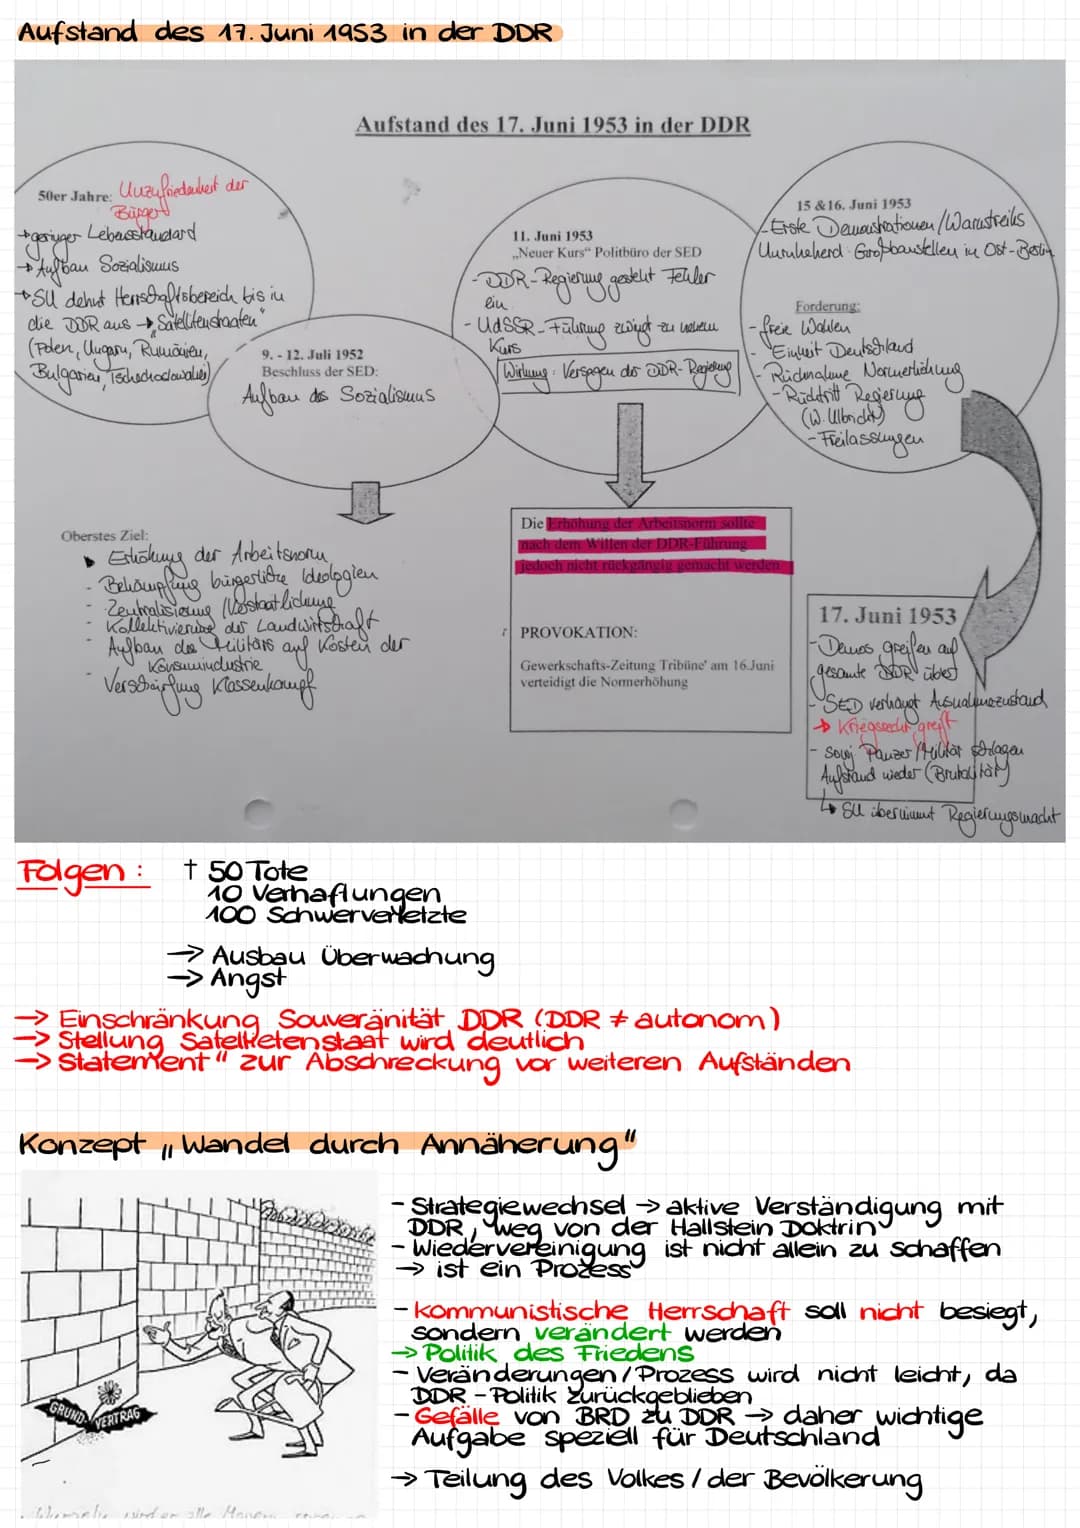 Aufstand des 17. Juni 1953 in der DDR
Aufstand des 17. Juni 1953 in der DDR
50er Jahre: Unzufriedenheit der
Bürger
→ geringer Lebensstandard
→ Aufbau Sozialismus
→ SU dehnt Herrschaftsbereich bis in
die DDR aus → "Satellitenstaaten"
(Polen, Ungarn, Rumänien,
Bulgarien, Tschechoslowakei)
9. - 12. Juli 1952
Beschluss der SED:
Aufbau des Sozialismus
Oberstes Ziel:
Erhöhung der Arbeitsnorm
- Bekämpfung bürgerliche Ideologien
- Zentralisierung / Verstaatlichung
- Kollektivierung der Landwirtschaft
- Aufbau des Militärs auf Kosten der
Konsumindustrie
- Verschärfung Klassenkampf
11. Juni 1953
„Neuer Kurs" Politbüro der SED
- DDR-Regierung gesteht Fehler
ein
- UdSSR-Führung zwingt zu neuem
Kurs
Wirkung: Versagen der DDR-Regierung
Die Erhöhung der Arbeitsnorm sollte
nach dem Willen der DDR-Führung
jedoch nicht rückgängig gemacht werden
PROVOKATION:
Gewerkschafts-Zeitung Tribüne' am 16.Juni
verteidigt die Normerhöhung
15 &16. Juni 1953
- Erste Demonstrationen / Warnstreiks
Unruheherd: Großbaustellen in Ost-Berlin
Forderung:
- freie Wahlen
- Einheit Deutschland
- Rücknahme Normerhöhung
- Rücktritt Regierung
(W. Ulbricht)
- Freilassungen
17. Juni 1953
- Demos greifen auf
gesamte DDR über
- SED verhängt Ausnahmezustand
→ Kriegsrecht greift
- sowj. Panzer / Militär schlagen
Aufstand nieder (Brutalität)
↳ SU übernimmt Regierungsmacht
Folgen: † 50 Tote
10 Verhaftungen
100 Schwerverletzte
→ Ausbau Überwachung
→ Angst
→ Einschränkung Souveränität DDR (DDR ≠ autonom)
→ Stellung Satelitenstaat wird deutlich
→ Statement" zur Abschreckung vor weiteren Aufständen
Konzept „Wandel durch Annäherung"
GRUND- VERTRAG
- Strategiewechsel → aktive Verständigung mit
DDR, weg von der Hallstein Doktrin
- Wiedervereinigung ist nicht allein zu schaffen
→ ist ein Prozess
- kommunistische Herrschaft soll nicht besiegt,
sondern verändert werden
→ Politik des Friedens
- Veränderungen / Prozess wird nicht leicht, da
DDR - Politik zurückgeblieben
- Gefälle von BRD zu DDR → daher wichtige
Aufgabe speziell für Deutschland
→ Teilung des Volkes / der Bevölkerung